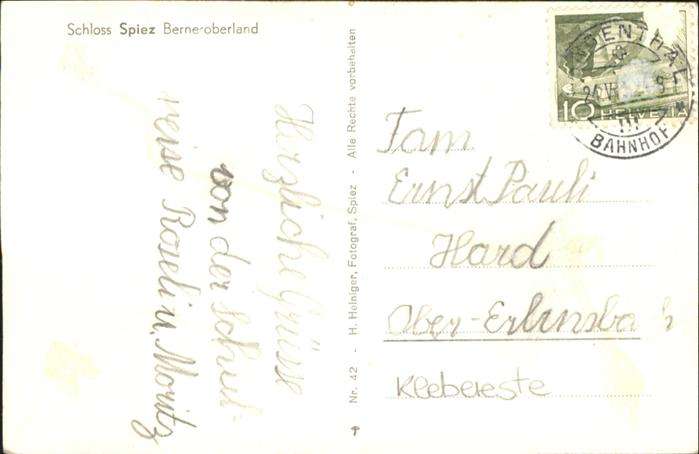 Schloss Spiez Berner-oberland
Herzliche Grüsse
von der Schul-
reise Roseli u. Moritz
Nr. 42 - H. Heiniger, Fotograf, Spiez - Alle Rechte vorbehalten
10 HELVETIA
BAHNHOF
Fam
Ernst Pauli
Hard
Ober-Erlinsbach
Klebereste